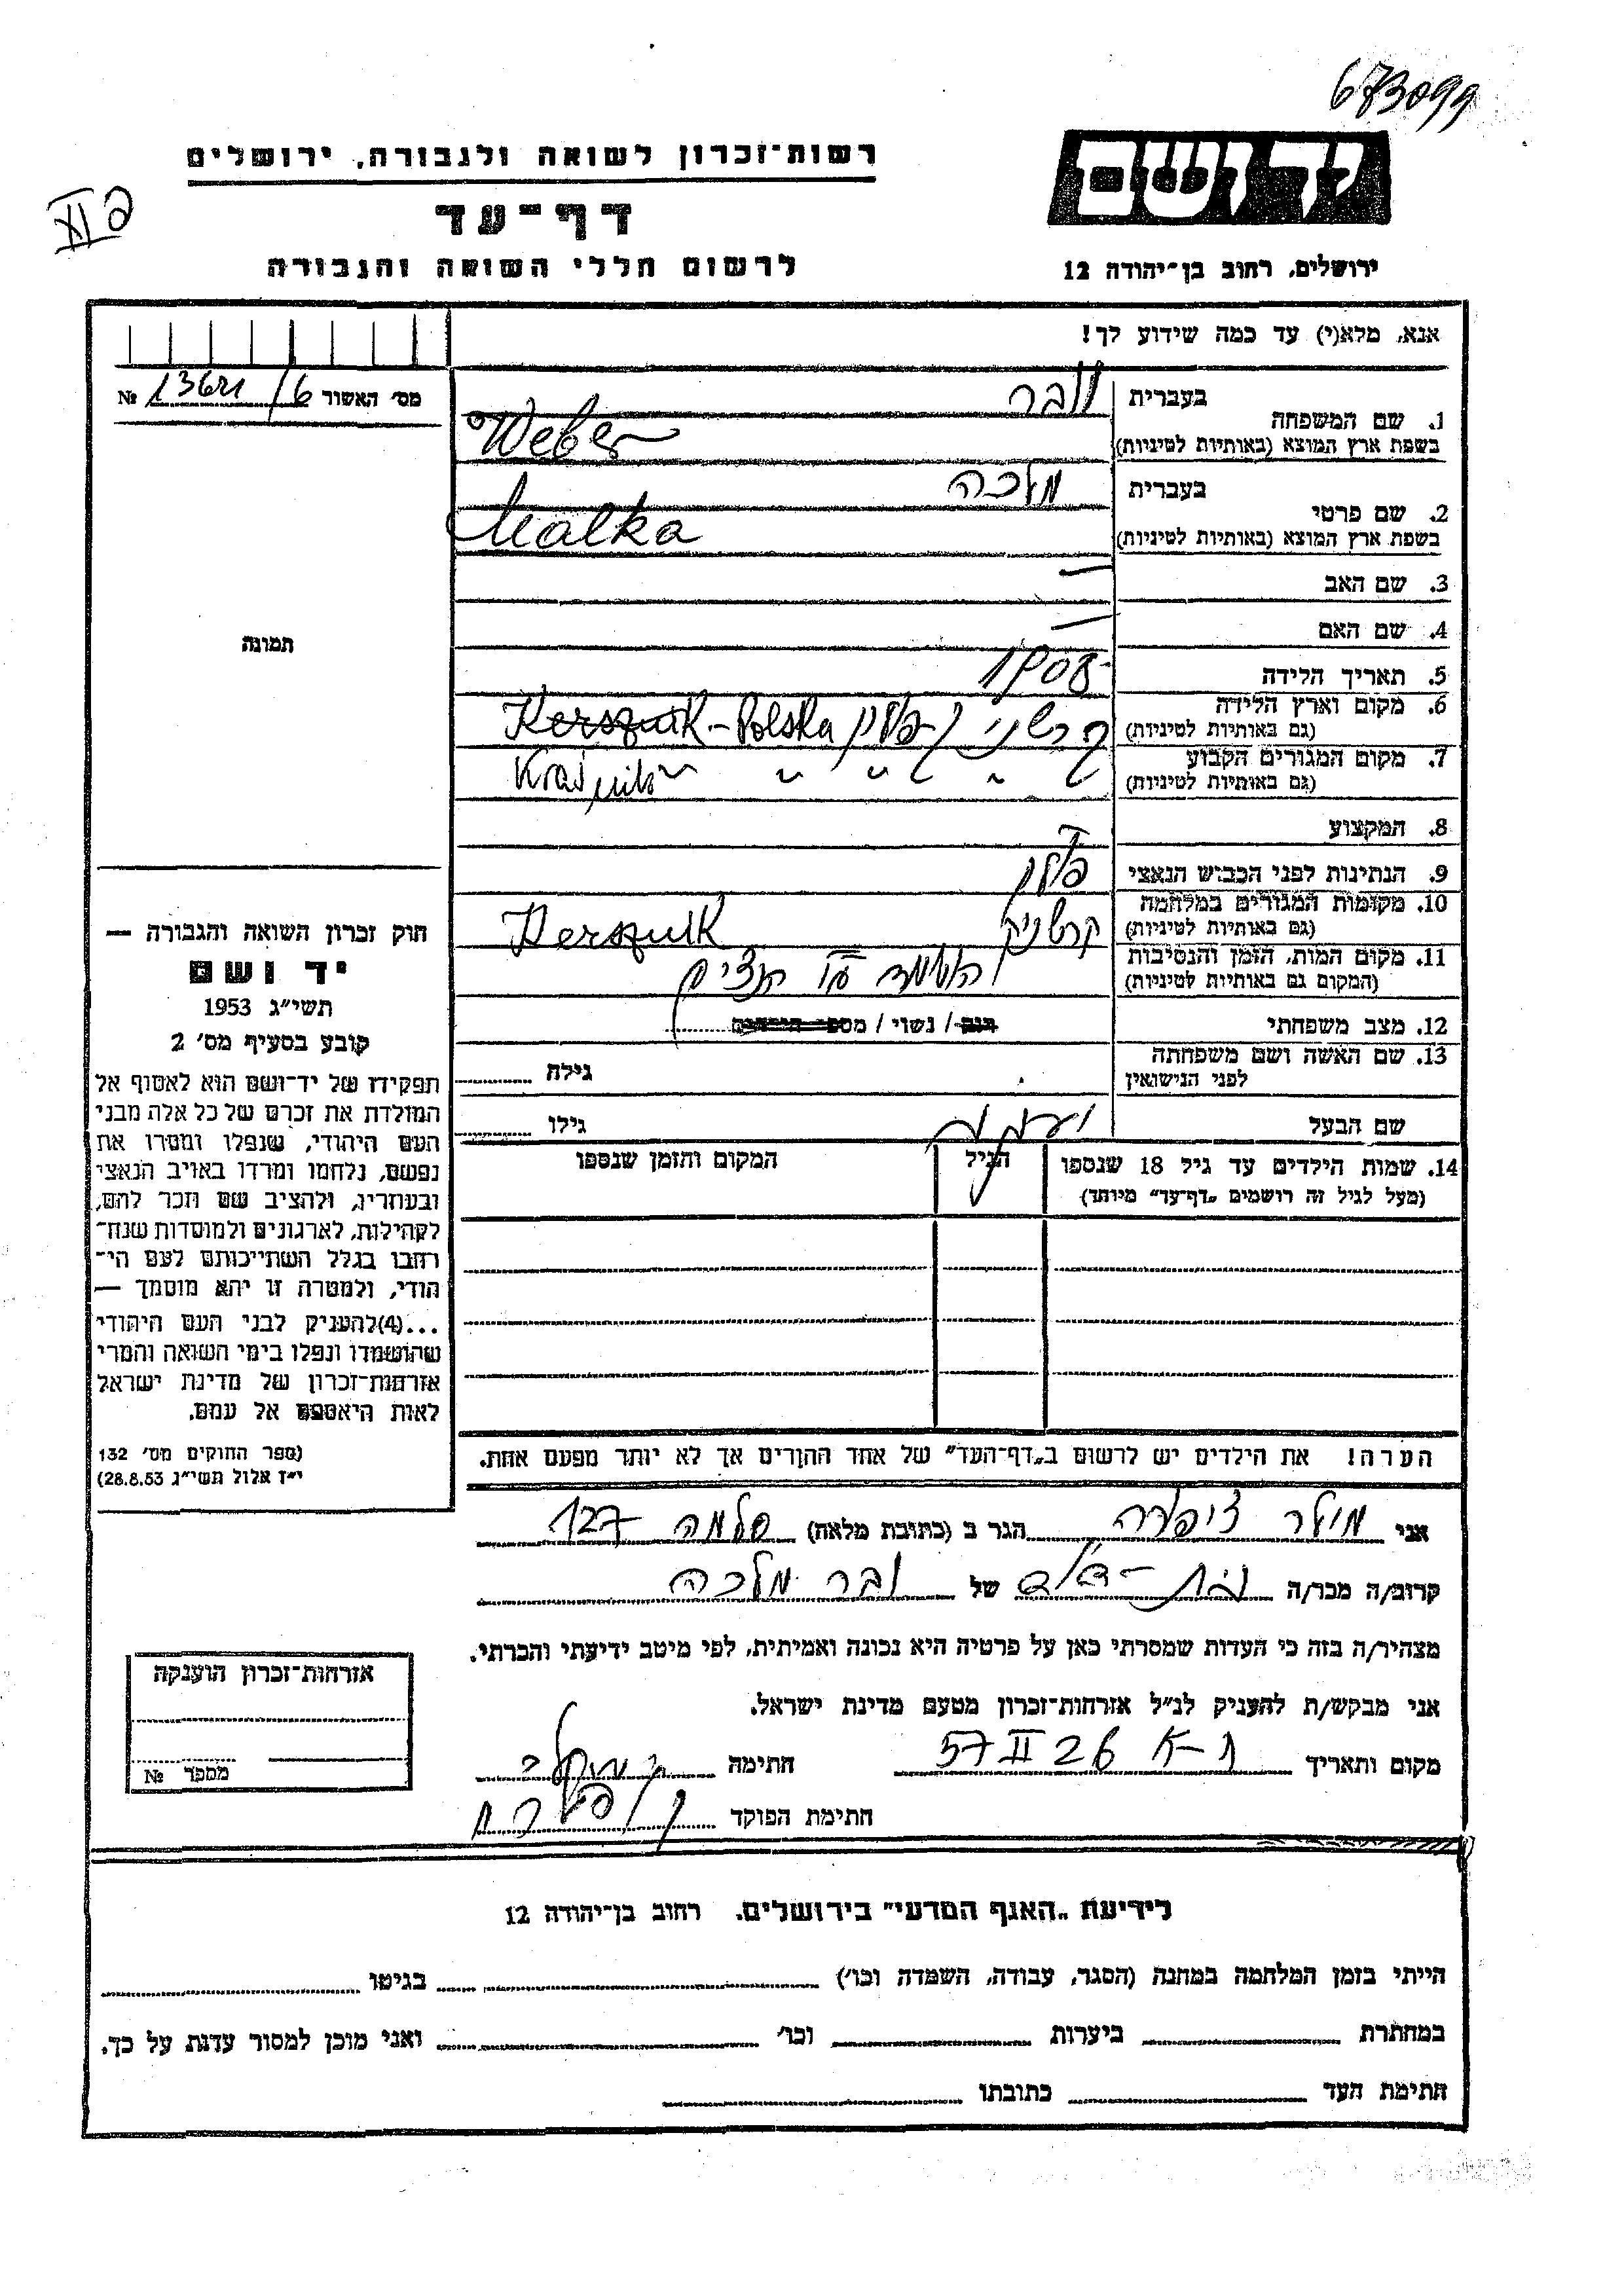 673099
רשות־זכרון לשואה ולגבורה, ירושלים
יד ושם
דף־עד
לרשום חללי השואה והגבורה
ירושלים, רחוב בן־יהודה 12
אנא, מלא(י) עד כמה שידוע לך!
מס' האשור № 
בעברית ובר
1. שם המשפחה
בשפת ארץ המוצא (באותיות לטיניות) Weber
בעברית מלכה
2. שם פרטי
בשפת ארץ המוצא (באותיות לטיניות) Malka
3. שם האב —
4. שם האם —
תמונה
5. תאריך הלידה 1908
6. מקום וארץ הלידה
(גם באותיות לטיניות) פולין Kersznik - Polska
7. מקום המגורים הקבוע
(גם באותיות לטיניות) " " " " Kraśnik
8. המקצוע
9. הנתינות לפני הכבוש הנאצי פולין
10. מקומות המגורים במלחמה
(גם באותיות לטיניות) קרשניק Kersznik
11. מקום המות, הזמן והנסיבות
(המקום גם באותיות לטיניות)
12. מצב משפחתי רוק / נשוי / מספר הילדים
13. שם האשה ושם משפחתה
לפני הנישואין גילה
שם הבעל גילו
14. שמות הילדים עד גיל 18 שנספו הגיל המקום והזמן שנספו
(מעל לגיל זה רושמים „דף־עד” מיוחד)
הערה! את הילדים יש לרשום ב„דף־העד” של אחד ההורים אך לא יותר מפעם אחת.
חוק זכרון השואה והגבורה —
יד ושם
תשי״ג 1953
קובע בסעיף מס' 2
תפקידו של יד־ושם הוא לאסוף אל
המולדת את זכרם של כל אלה מבני
העם היהודי, שנפלו ומסרו את
נפשם, נלחמו ומרדו באויב הנאצי
ובעוזריו, ולהציב שם וזכר להם,
לקהילות, לארגונים ולמוסדות שנח־
רבו בגלל השתייכותם לעם הי־
הודי, ולמטרה זו יהא מוסמך —
...(4)להעניק לבני העם היהודי
שהושמדו ונפלו בימי השואה והמרי
אזרחות־זכרון של מדינת ישראל
לאות היאספם אל עמם.
(ספר החוקים מס' 132
י״ז אלול תשי״ג 28.8.53)
אני מילר ציפורה הגר ב (כתובת מלאה) סלמה 127
קרוב/ה מכר/ה בת-דוד של ובר מלכה
מצהיר/ה בזה כי העדות שמסרתי כאן על פרטיה היא נכונה ואמיתית, לפי מיטב ידיעתי והכרתי.
אני מבקש/ת להעניק לנ״ל אזרחות־זכרון מטעם מדינת ישראל.
מקום ותאריך ת-א 26 II 57 חתימה
חתימת הפוקד
אזרחות־זכרון הוענקה
מספר №
לידיעת „האגף המדעי” בירושלים. רחוב בן־יהודה 12
הייתי בזמן המלחמה במחנה (הסגר, עבודה, השמדה וכו') בגיטו
במחתרת ביערות וכו' ואני מוכן למסור עדות על כך.
חתימת העד כתובתו